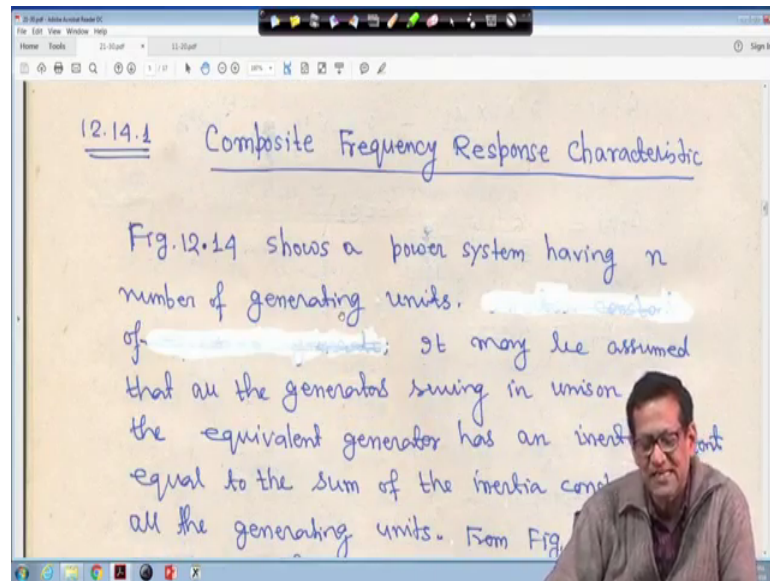 21-30.pdf - Adobe Acrobat Reader DC
File Edit View Window Help
Home Tools 21-30.pdf × 11-20.pdf Sign In
12.14.1 Composite Frequency Response Characteristic
Fig.12.14 shows a power system having n
number of generating units.
of It may be assumed
that all the generators swing in unison
the equivalent generator has an
equal to the sum of the inertia
all the generating units. From Fig.